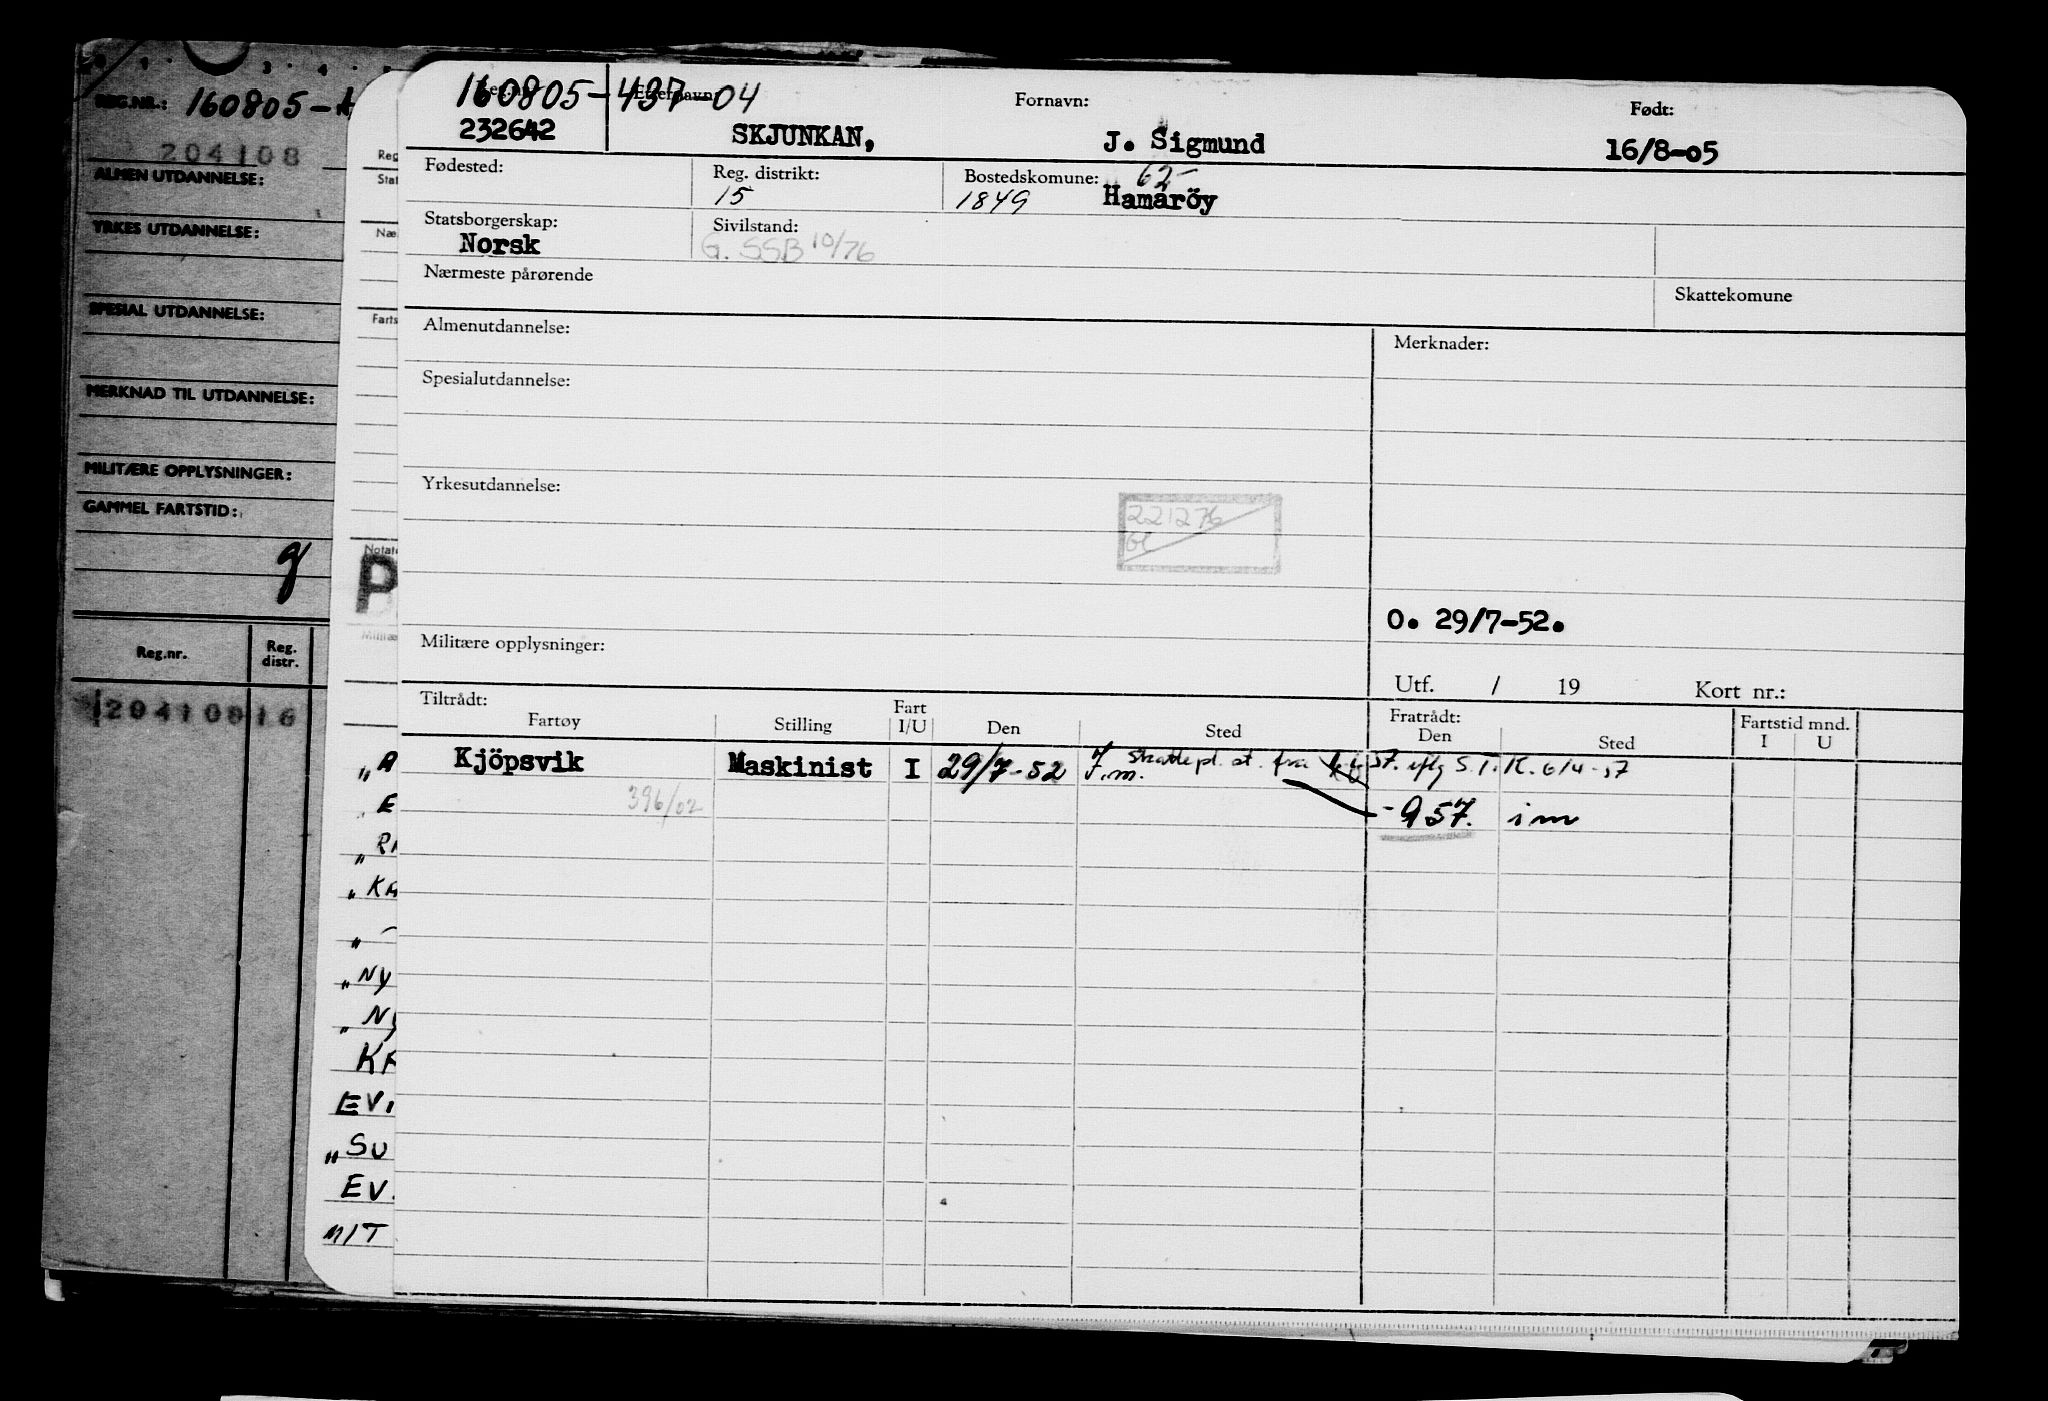 REG.NR.: 160805-
204108
ALMEN UTDANNELSE:
YRKES UTDANNELSE:
SPESIAL UTDANNELSE:
MERKNAD TIL UTDANNELSE:
MILITÆRE OPPLYSNINGER:
GAMMEL FARTSTID:
g
Reg.nr. Reg. distr.
204108 16
Reg
Stat
Næ
Farts
Notate
P
Militæ
„A
E
„RA
„KA
„
„NY
„NY
KA
EV
„SU
EV.
MIT
160805-437-04
Etternavn:
Fornavn:
Født:
232642
SKJUNKAN,
J. Sigmund
16/8-05
Fødested:
Reg. distrikt:
15
Bostedskomune: 62-
1849 Hamaröy
Statsborgerskap:
Norsk
Sivilstand:
G. SSB 10/76
Nærmeste pårørende
Skattekomune
Almenutdannelse:
Merknader:
Spesialutdannelse:
Yrkesutdannelse:
221276
O. 29/7-52.
Militære opplysninger:
Utf. / 19 Kort nr.:
Tiltrådt:
Fratrådt:
Fartstid mnd.
Fartøy Stilling Fart I/U Den Sted Den Sted I U
Kjöpsvik Maskinist I 29/7-52 I.m. Skattepl. st. fra ST. iflg S.T.K. 6/4-57
396/02
- 9 57. im